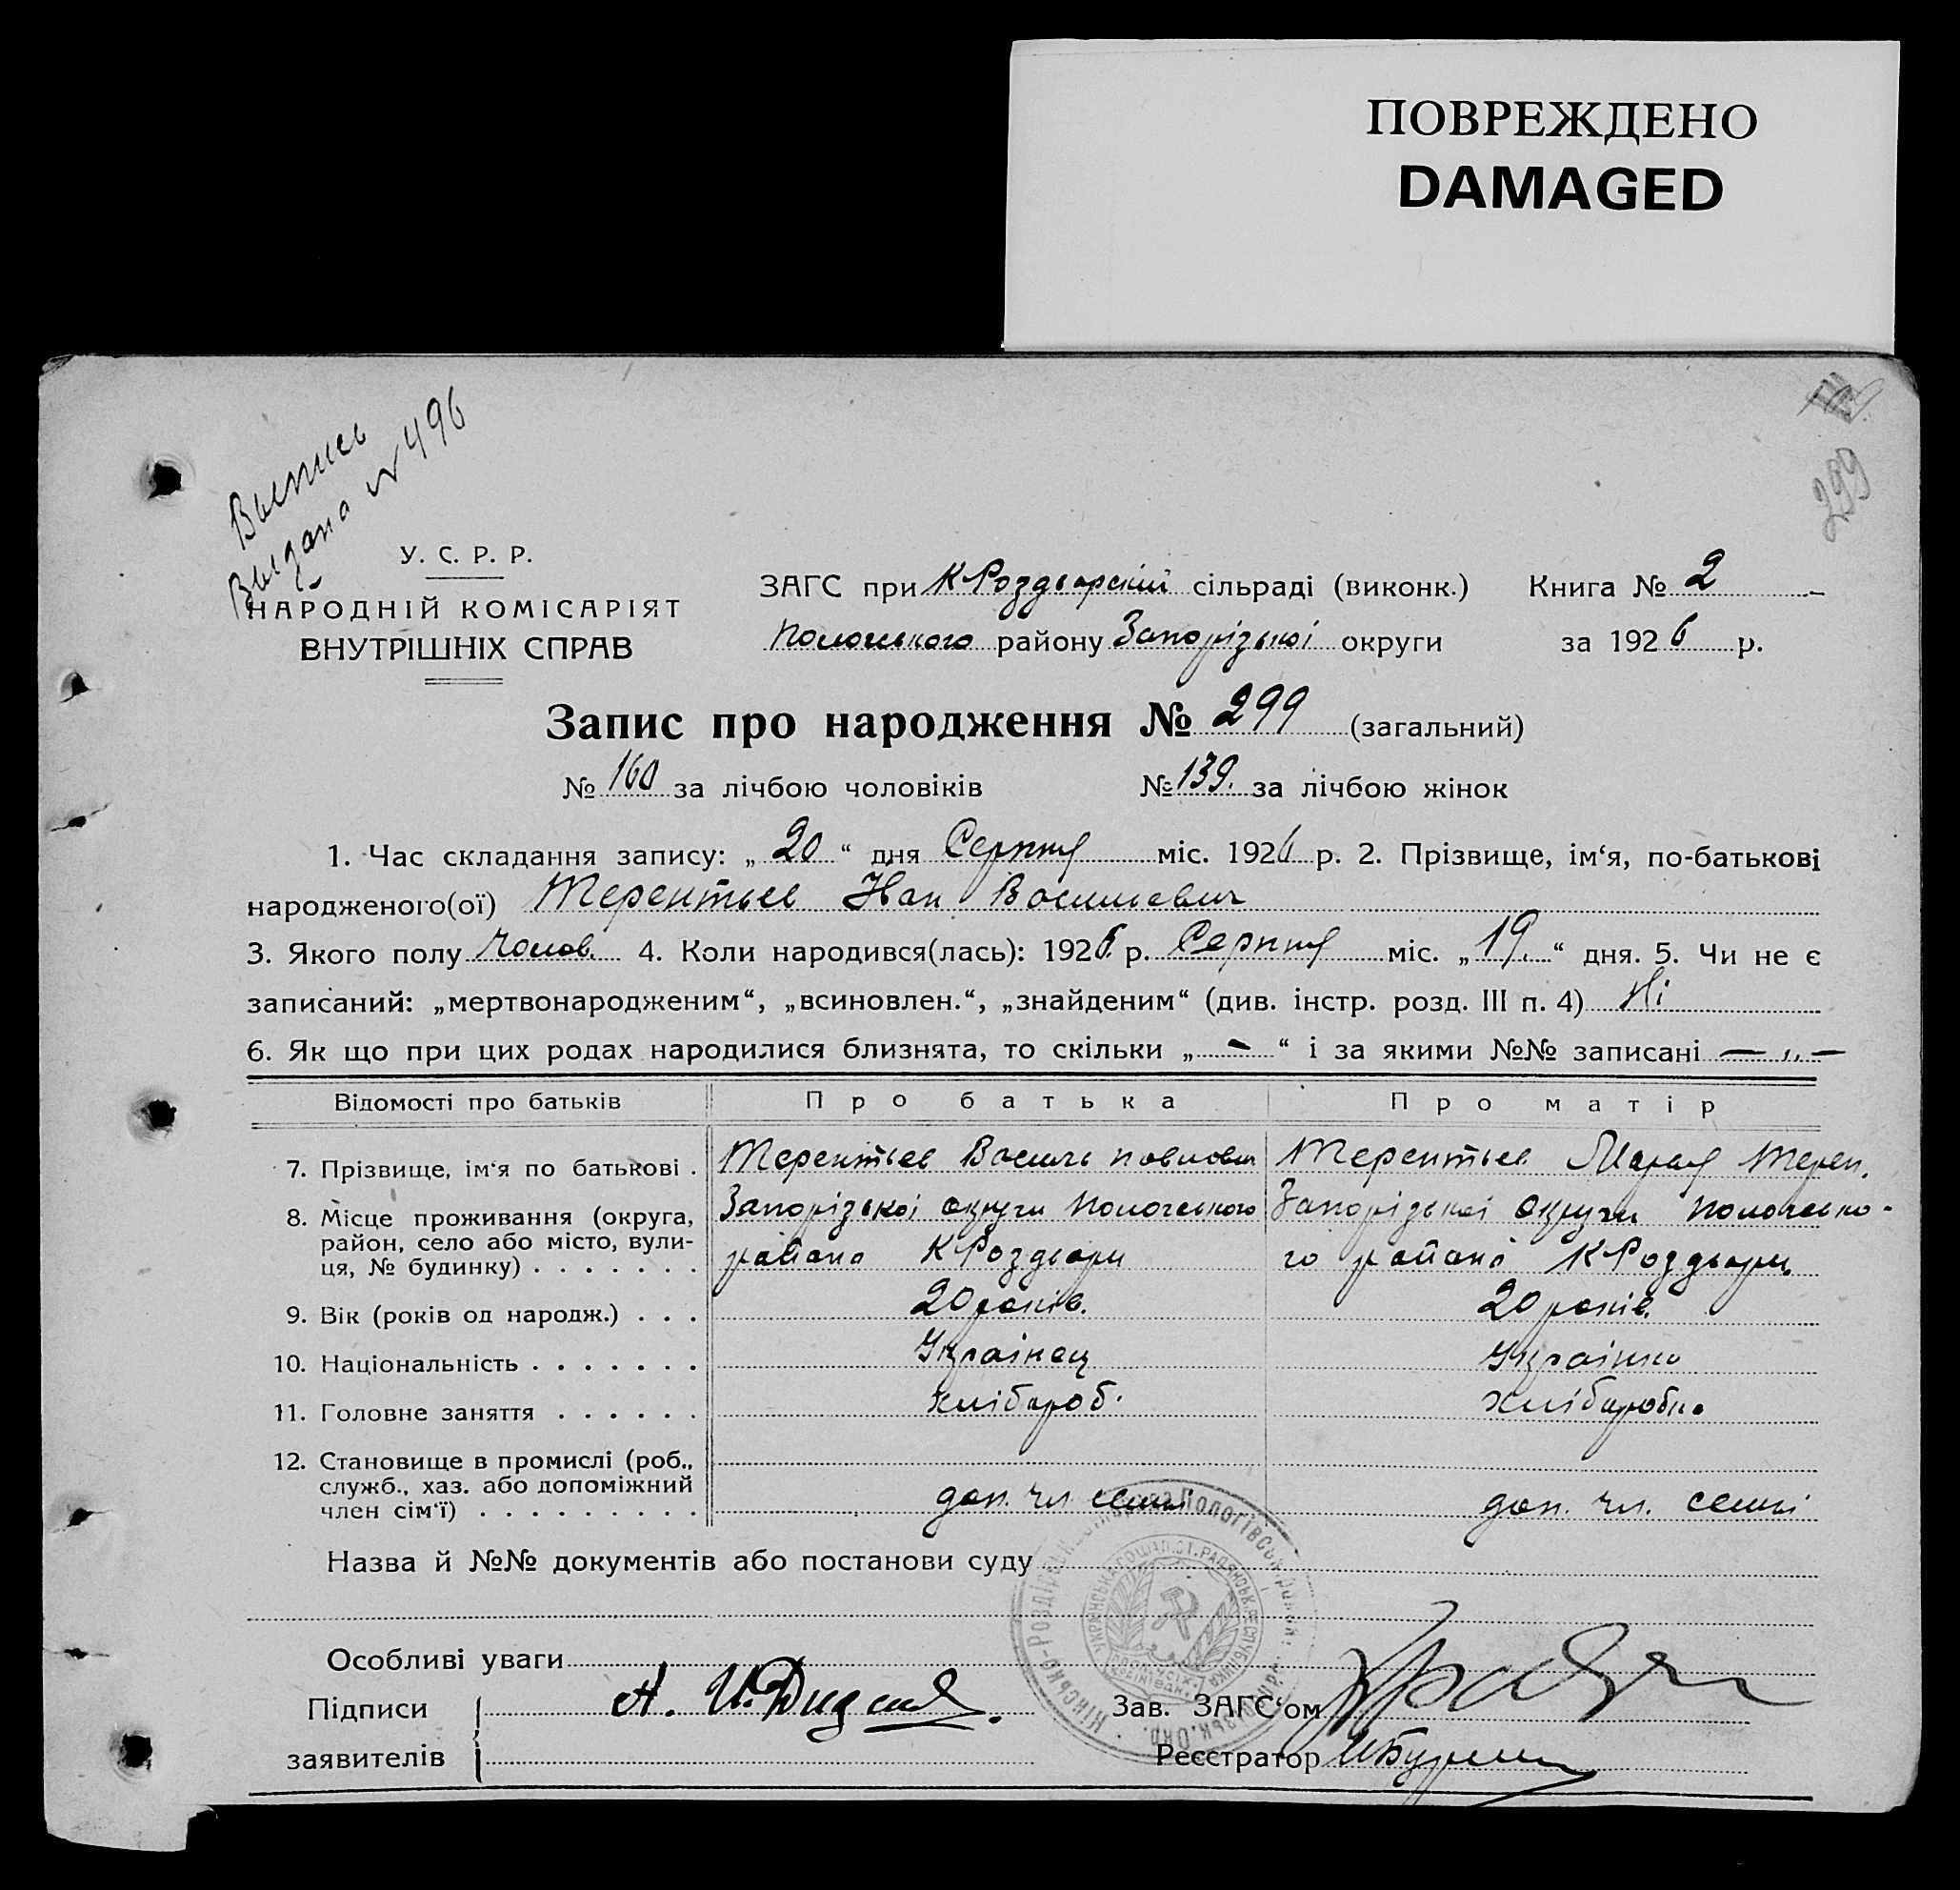 ПОВРЕЖДЕНО
DAMAGED
299
Выпись
Выдана № 496
У. С. Р. Р.
НАРОДНІЙ КОМІСАРІЯТ
ВНУТРІШНІХ СПРАВ
ЗАГС при КРоздорскій сільраді (виконк.) Книга № 2
Пологського району Запорізької округи за 1926 р.
Запис про народження № 299 (загальний)
№ 160 за лічбою чоловіків № 139. за лічбою жінок
1. Час складання запису: „ 20 “ дня Серпня міс. 1926 р. 2. Прізвище, ім‘я, по-батькові
народженого(ої) Терентьев Йван Васильевич
3. Якого полу Чолов. 4. Коли народився(лась): 1926 р. Серпня міс. „ 19. “ дня. 5. Чи не є
записаний: „мертвонародженим“, „всиновлен.“, „знайденим“ (див. інстр. розд. III п. 4) Ні
6. Як що при цих родах народилися близнята, то скільки „ - “ і за якими №№ записані — „ —
Відомості про батьків Про батька Про матір
7. Прізвище, ім‘я по батькові . Терентьев Василь Павлович Терентьев Терен.
8. Місце проживання (округа, Запорізької округи Пологського Запорізької округи Пологсько-
район, село або місто, вули- района КРоздори го района КРоздори
ця, № будинку) . . . . . . .
9. Вік (років од народж.) . . . 20 років. 20 років.
10. Національність . . . . . . . Українец Українка
11. Головне заняття . . . . . . хлібороб. хліборобка
12. Становище в промислі (роб.,
служб., хаз. або допоміжний
член сім‘ї) . . . . . . . . . доп. чл семьі доп. чл. семьі
Назва й №№ документів або постанови суду
Особливі уваги
Підписи А. И. Зав. ЗАГС‘ом
заявителів Реєстратор